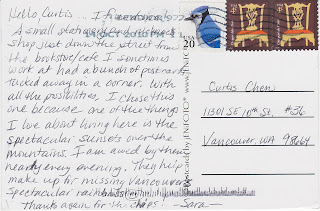 Hello, Curtis ...
A small stationery
shop just down the street from
the bookstore/cafe I sometimes
work at had a bunch of postcards
tucked away in a corner. With
all the possibilities, I chose this
one because one of the things
I love about living here is the
spectacular sunsets over the
mountains. I am awed by them
nearly every evening. They help
make up for missing Vancouver's
spectacular
Thanks again for the chips! -Sara-
USA
20
Curtis Chen
11301 SE 10th St. #36
Vancouver, WA 98664